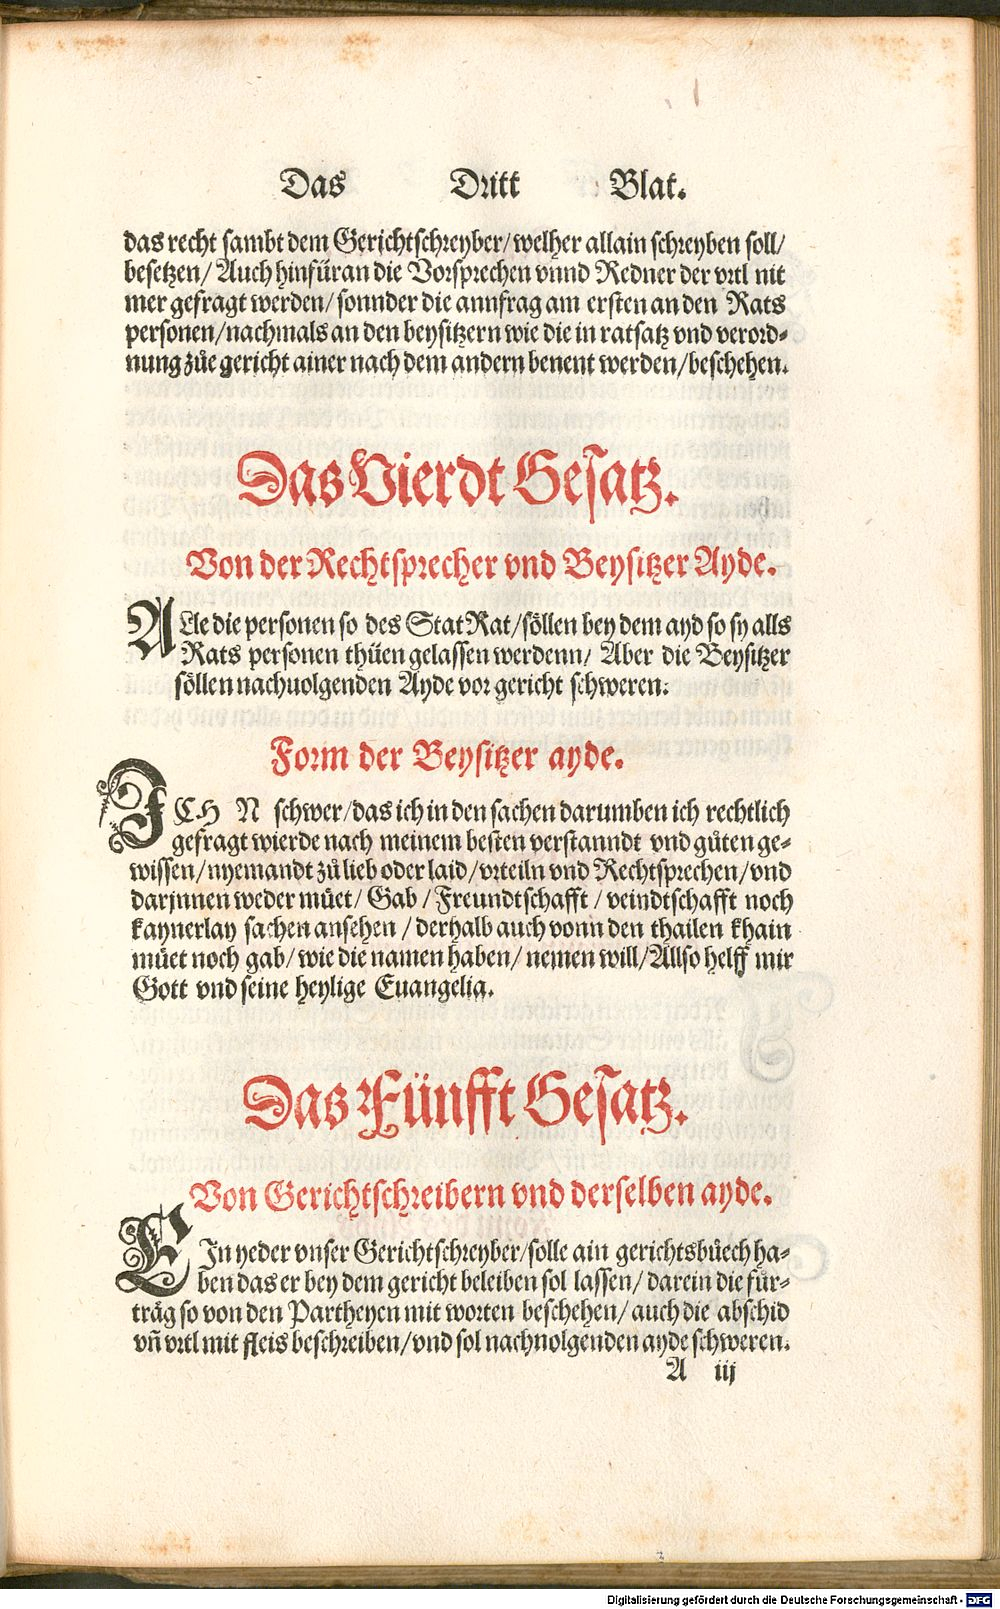 Das Dritt Blat.
das recht sambt dem Gerichtschreyber/ welher allain schreyben soll/
besetzen/ Auch hinfüran die Vorsprechen vnnd Redner der vrtl nit
mer gefragt werden/ sonnder die annfrag am ersten an den Rats
personen/ nachmals an den beysitzern wie die in ratsatz vnd verord-
nung züe gericht ainer nach dem andern benent werden/ beschehen.
Das Vierdt Gesatz.
Von der Rechtsprecher vnd Beysitzer Ayde.
ALle die personen so des Stat Rat/ söllen bey dem ayd so sy alls
Rats personen thüen gelassen werdenn/ Aber die Beysitzer
söllen nachuolgenden Ayde vor gericht schweren.
Form der Beysitzer ayde.
ICH N schwer/ das ich in den sachen darumben ich rechtlich
gefragt wierde nach meinem besten verstanndt vnd gůten ge-
wissen/ nyemandt zů lieb oder laid/ vrteiln vnd Rechtsprechen/ vnd
darjnnen weder müet/ Gab/ Freundtschafft/ veindtschafft noch
kaynerlay sachen ansehen/ derhalb auch vonn den thailen khain
müet noch gab/ wie die namen haben/ nemen will/ Allso helff mir
Gott vnd seine heylige Euangelia.
Das Fünfft Gesatz.
Von Gerichtschreibern vnd derselben ayde.
EJn yeder vnser Gerichtschreyber/ solle ain gerichtsbüech ha-
ben das er bey dem gericht beleiben sol lassen/ darein die für-
träg so von den Partheyen mit worten beschehen/ auch die abschid
vñ vrtl mit fleis beschreiben/ vnd sol nachuolgenden ayde schweren.
A iij
Digitalisierung gefördert durch die Deutsche Forschungsgemeinschaft - DFG